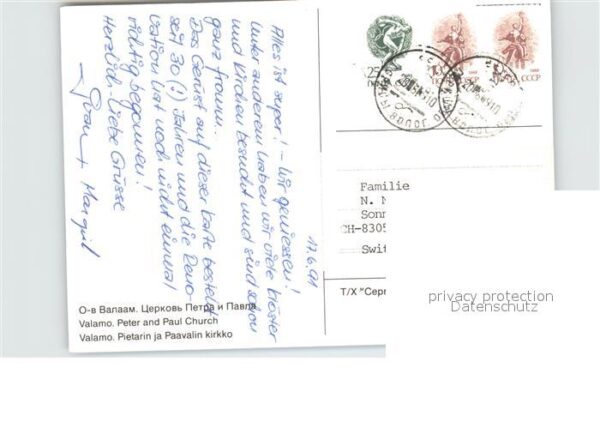 17.6.91
Alles ist super! – Wir geniessen!
Unter anderem haben wir viele Klöster
und Kirchen besucht und sind schon
ganz fromm.
Das Gerüst auf dieser Karte besteht
seit 30 (!) Jahren und die Reno-
vation hat noch nicht einmal
richtig begonnen!
Herzlich liebe Grüsse
+ Margrit
О-в Валаам. Церковь Петра и Павла
Valamo. Peter and Paul Church
Valamo. Pietarin ja Paavalin kirkko
СССР
Familie
N. N
Sonn
CH-8305
Swit
Т/Х "Серг
privacy protection
Datenschutz